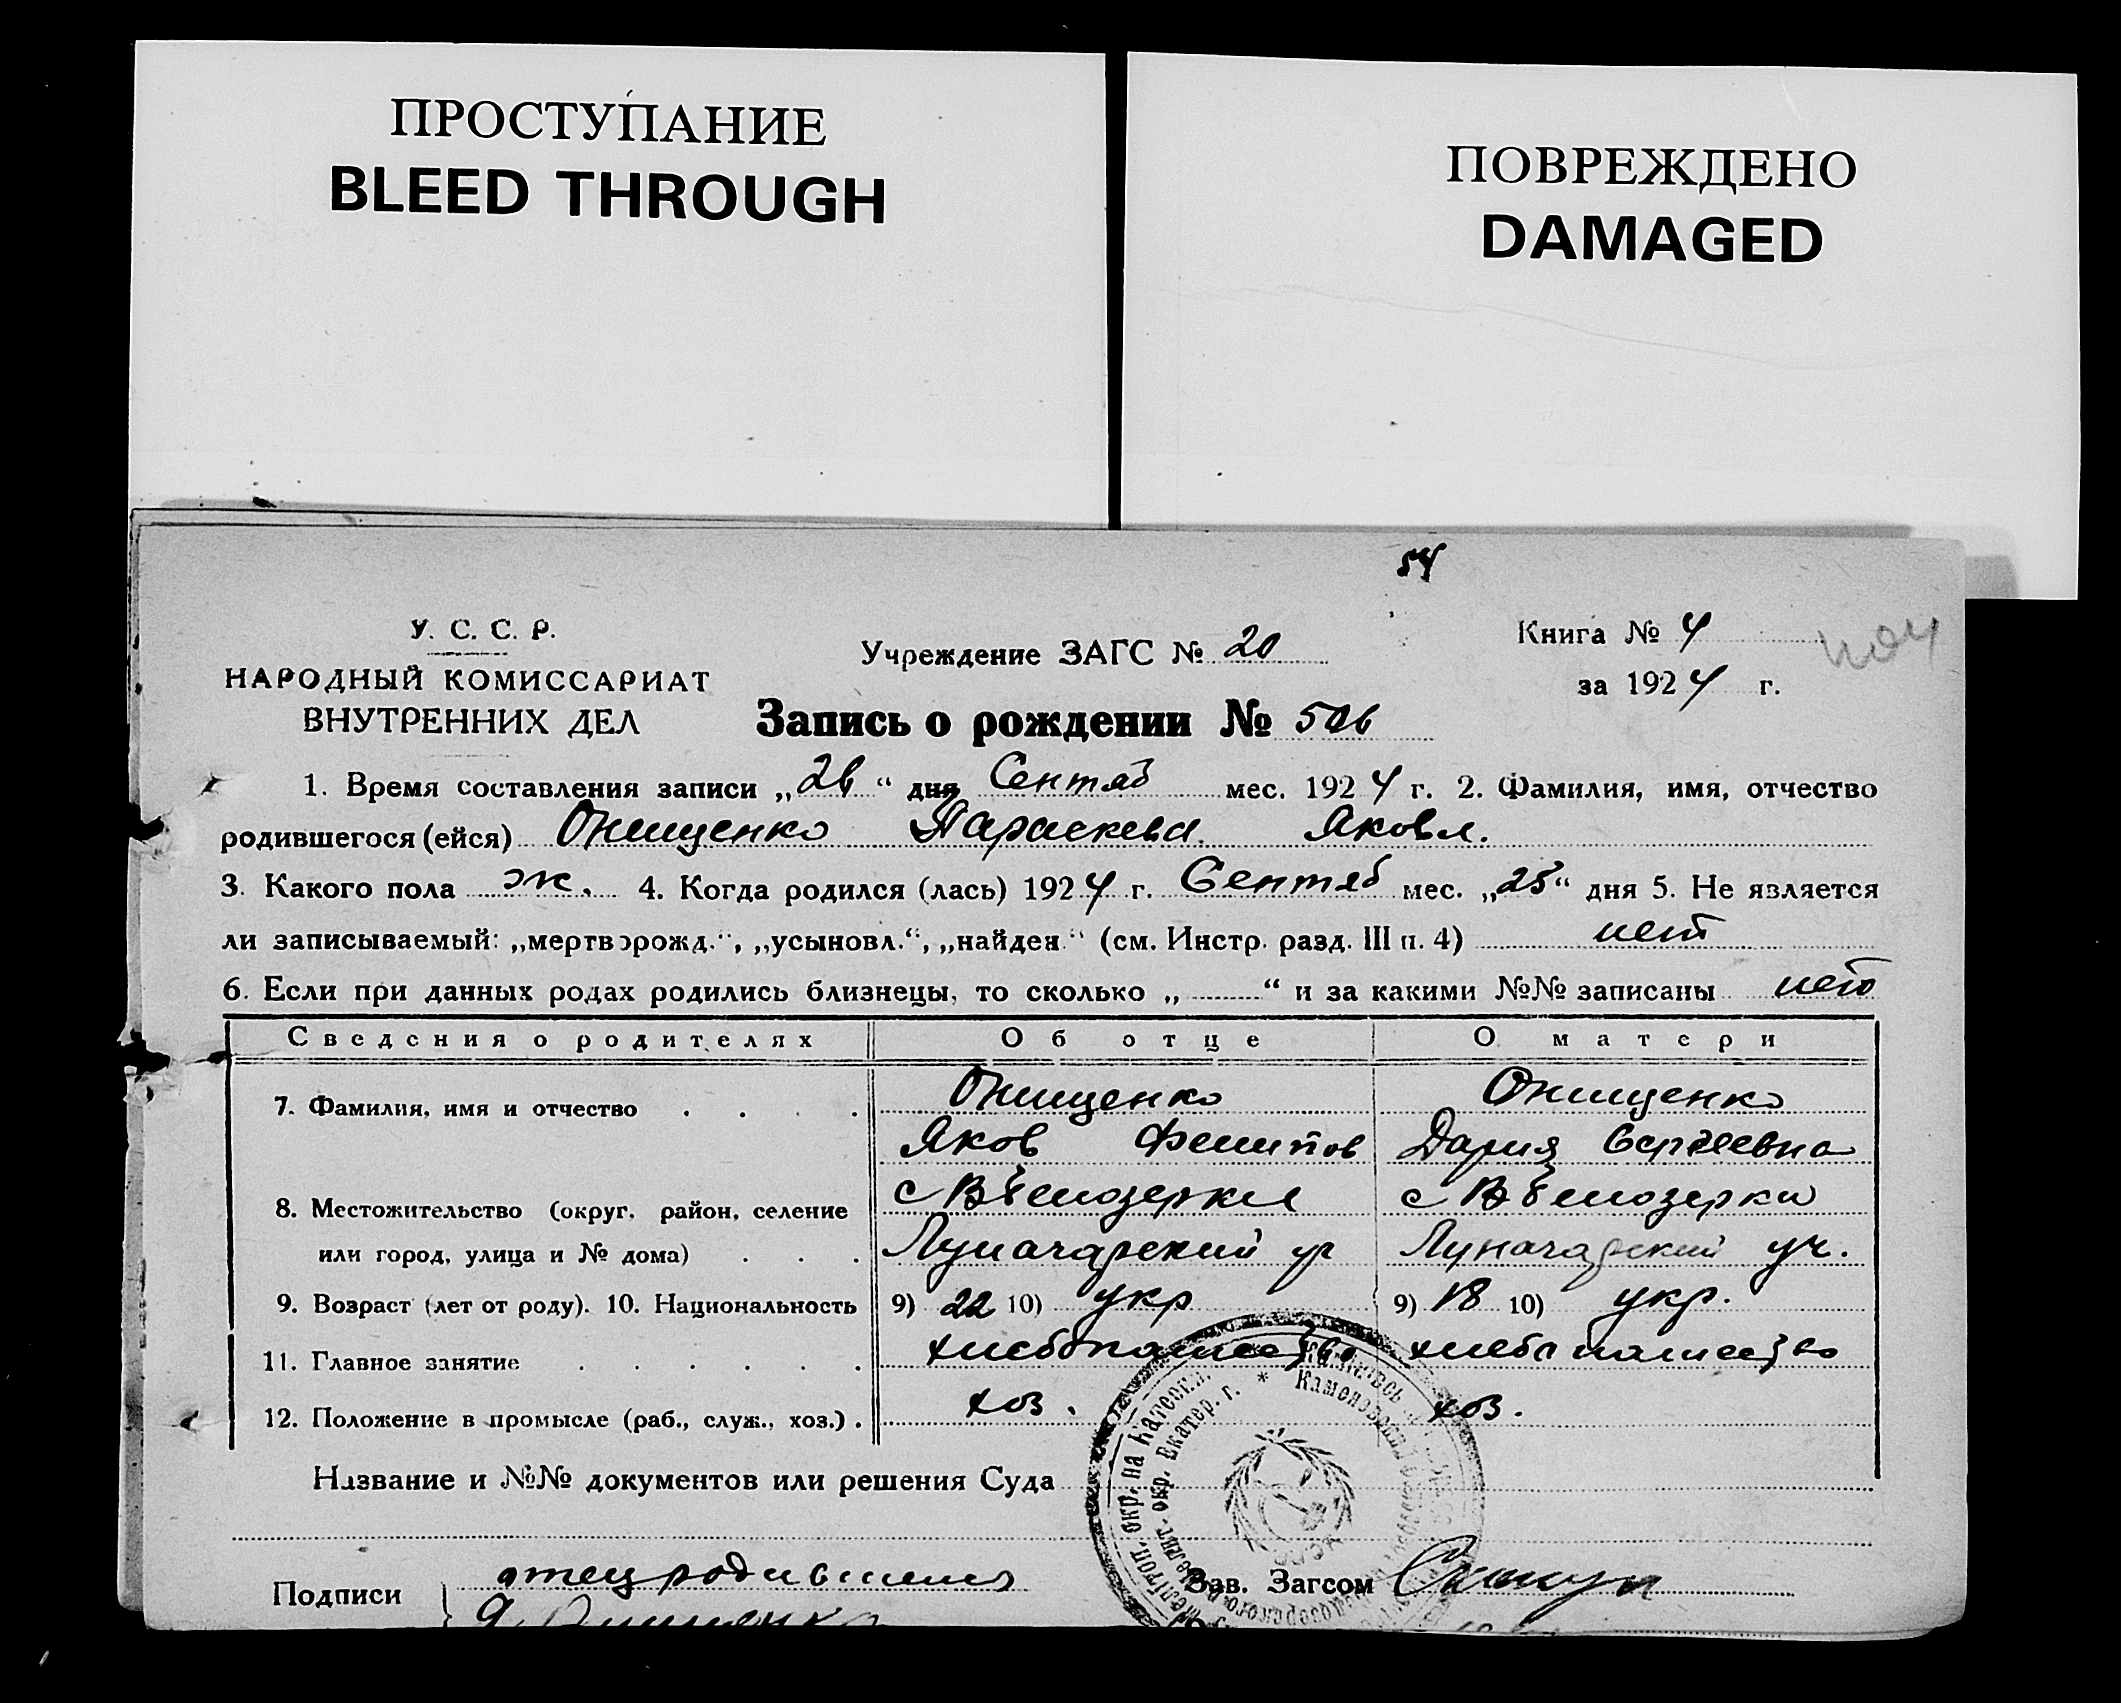 ПРОСТУПАНИЕ
BLEED THROUGH
ПОВРЕЖДЕНО
DAMAGED
54
У. С. С. Р.
НАРОДНЫЙ КОМИССАРИАТ
ВНУТРЕННИХ ДЕЛ
Учреждение ЗАГС № 20
Книга № 4
за 1924 г.
Запись о рождении № 506
1. Время составления записи „26“ дня Сентяб мес. 1924 г. 2. Фамилия, имя, отчество
родившегося (ейся) Онищенко Параскева Яковл.
3. Какого пола ж. 4. Когда родился (лась) 1924 г. Сентяб мес. „25“ дня 5. Не является
ли записываемый: „мертворожд.“, „усыновл.“, „найден“ (см. Инстр. разд. III п. 4) нет
6. Если при данных родах родились близнецы, то сколько „ “ и за какими №№ записаны нет
Сведения о родителях Об отце О матери
7. Фамилия, имя и отчество Онищенко Онищенко
Яков Филипов Дария Сергеевна
8. Местожительство (округ, район, селение с В Белозерки с В Белозерки
или город, улица и № дома) Луначарский Луначарский уч.
9. Возраст (лет от роду). 10. Национальность 9) 22 10) укр 9) 18 10) укр.
11. Главное занятие хлебопашество хлебопашество
12. Положение в промысле (раб., служ., хоз.) хоз. хоз.
Название и №№ документов или решения Суда
Подписи отец родившейся Зав. Загсом
Я Онищенко